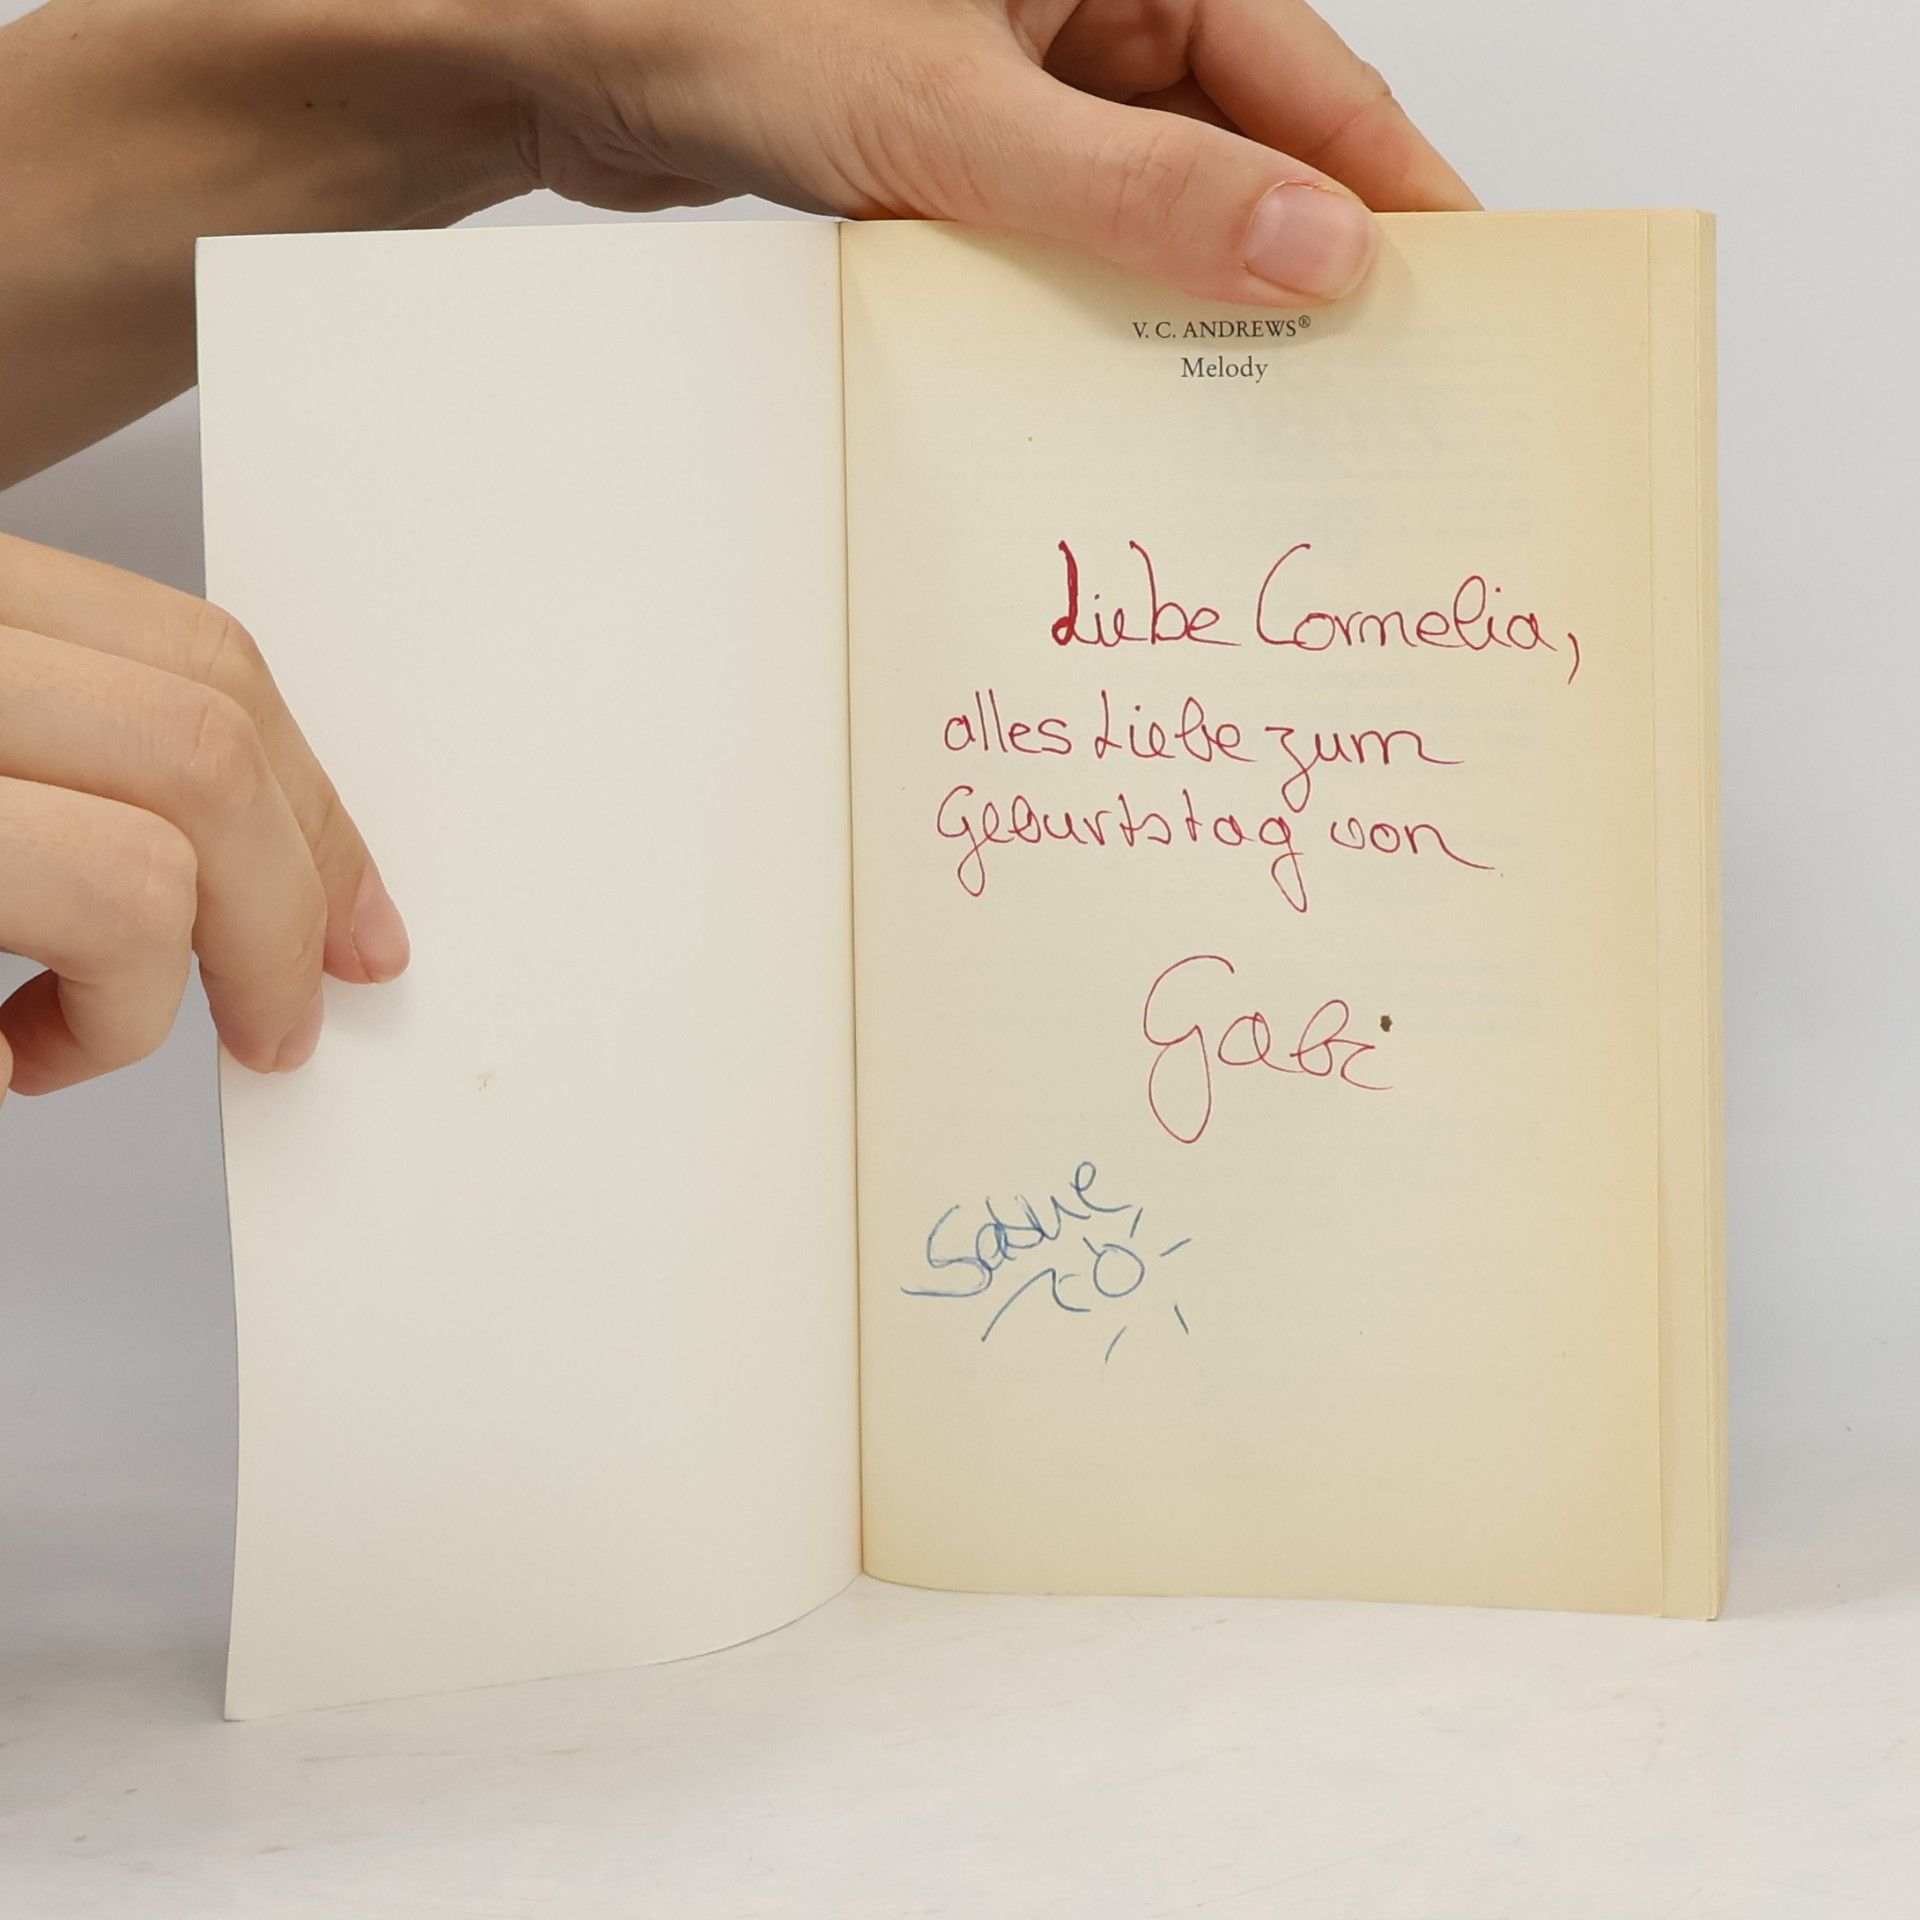 V. C. ANDREWS®
Melody
Liebe Cornelia,
alles Liebe zum
Geburtstag von
Gabi